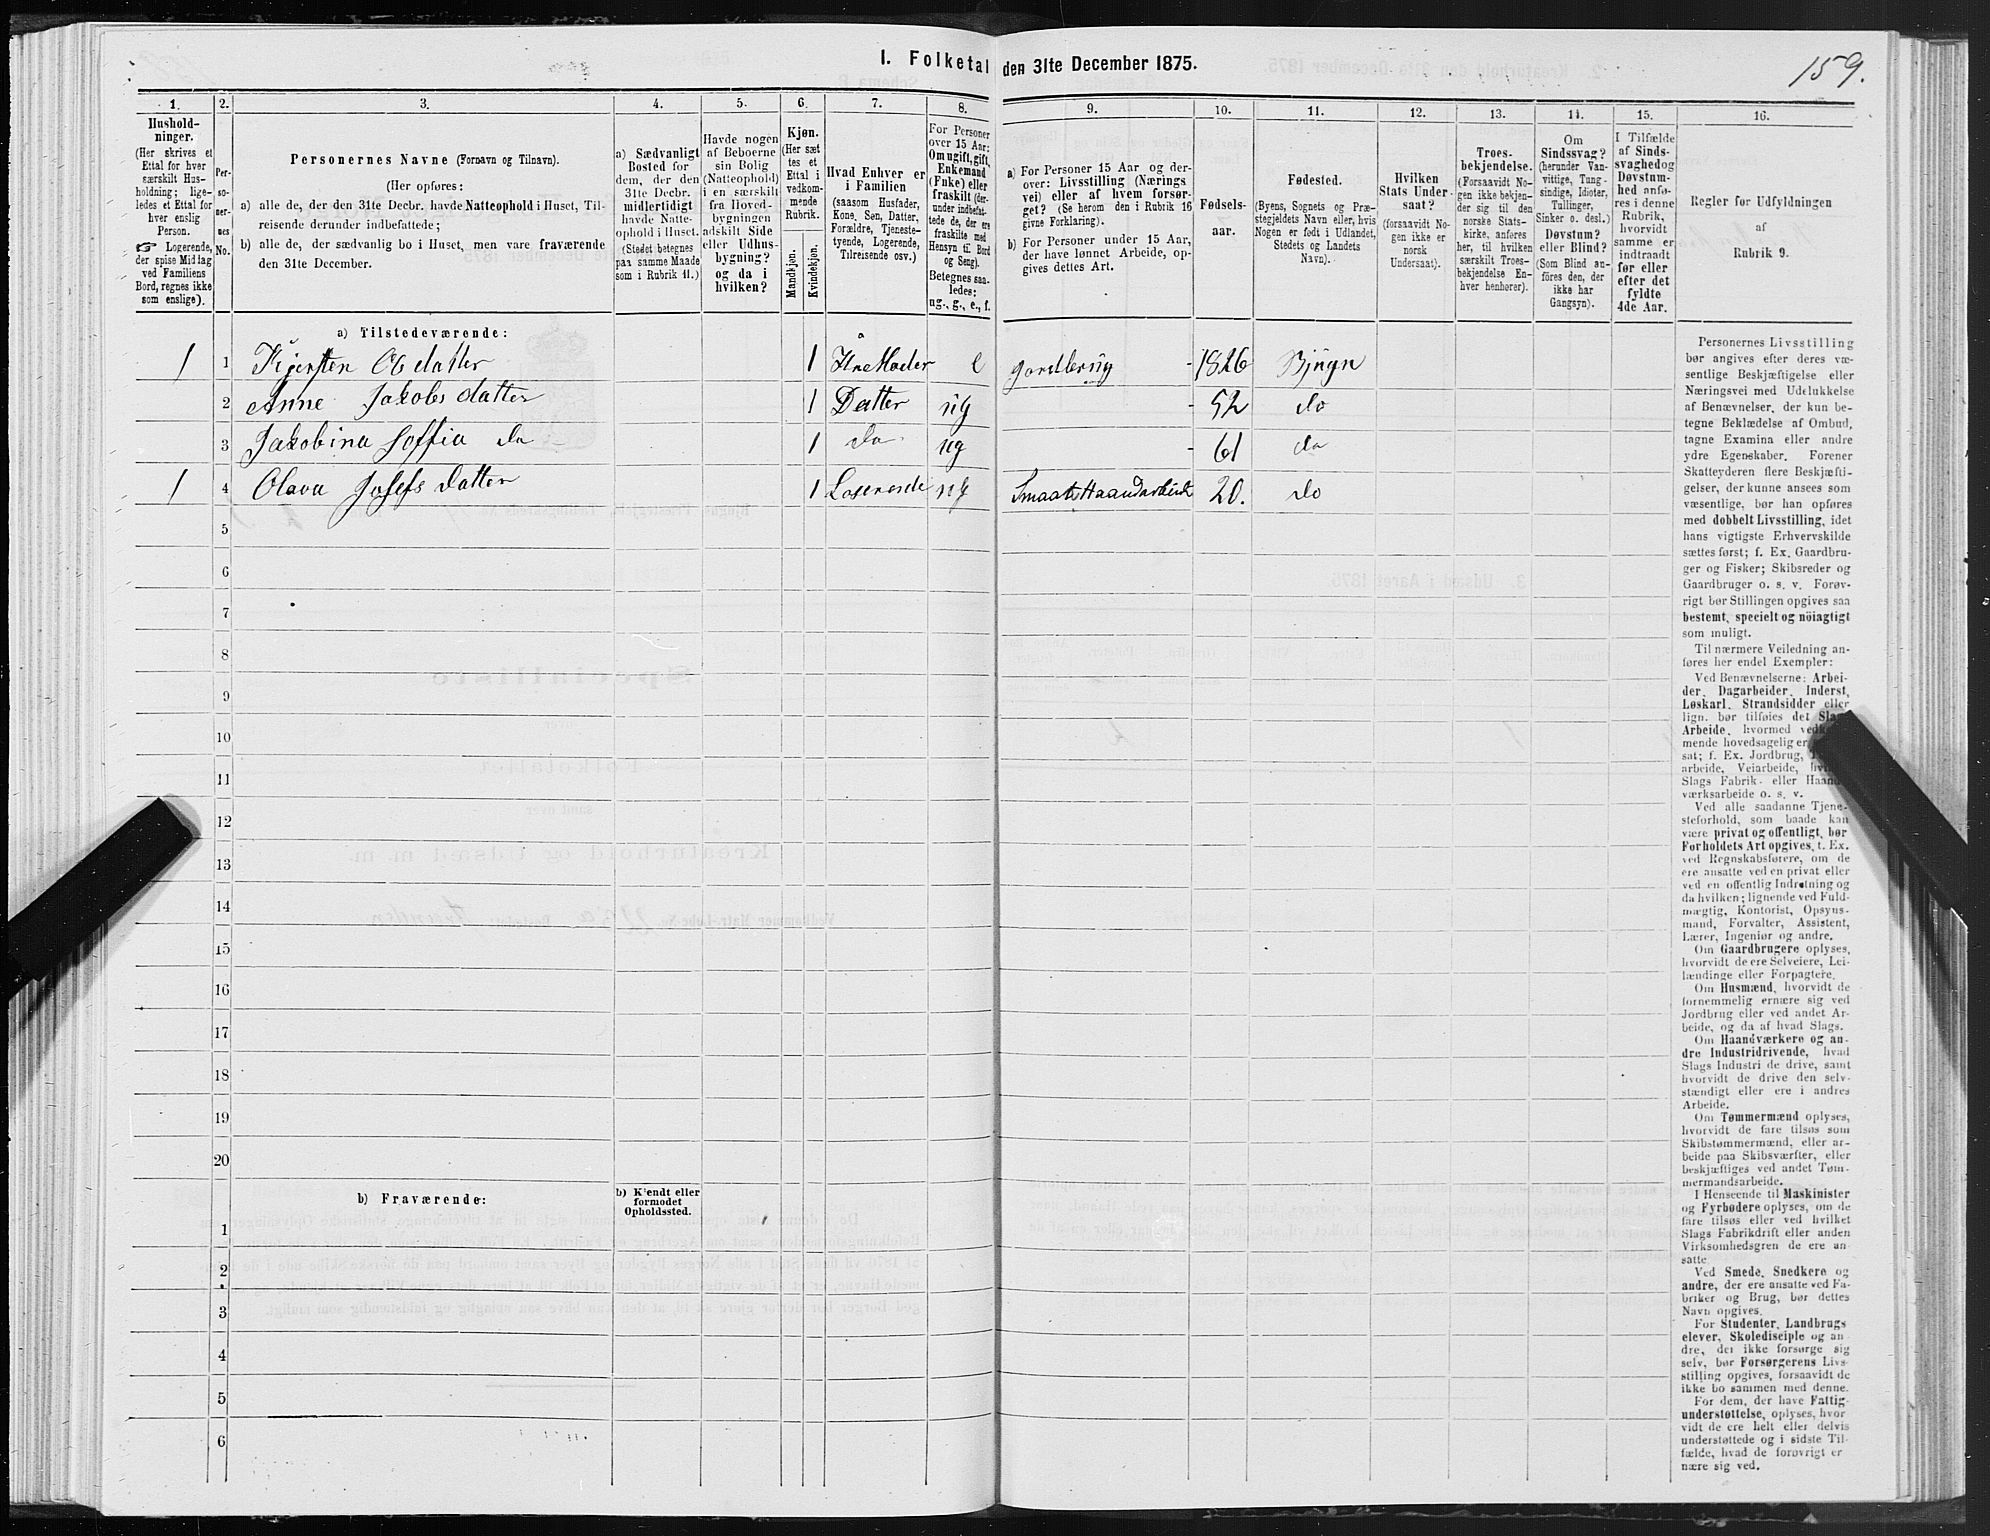 I. Folketal den 31te December 1875.
159.
1.
Hushold-
ninger.
(Her skrives et
Ettal for hver
særskilt Hus-
holdning; lige-
ledes et Ettal for
hver enslig
Person.
☞ Logerende,
der spise Middag
ved Familiens
Bord, regnes ikke
som enslige).
2.
Per-
so-
ner-
nes
No.
3.
Personernes Navne (Fornavn og Tilnavn).
(Her opføres:
a) alle de, der den 31te Decbr. havde Natteophold i Huset, Til-
reisende derunder indbefattede;
b) alle de, der sædvanlig bo i Huset, men vare fraværende
den 31te December.
4.
a) Sædvanligt
Bosted for
dem, der den
31te Decbr.
midlertidigt
havde Natte-
ophold i Huset.
(Stedet betegnes
paa samme Maade
som i Rubrik 11.)
5.
Havde nogen
af Beboerne
sin Bolig
(Natteophold)
i en særskilt
fra Hoved-
bygningen
adskilt Side
eller Udhus-
bygning?
og da i
hvilken?
6.
Kjøn.
(Her sæt
tes et
Ettal i
vedkom-
mende
Rubrik.
Mandkjøn.
Kvindekjøn.
7.
Hvad Enhver er
i Familien
(saasom Husfader,
Kone, Søn, Datter,
Forældre, Tjeneste-
tyende, Logerende,
Tilreisende osv.)
8.
For Personer
over 15 Aar:
Om ugift, gift,
Enkemand
(Enke) eller
fraskilt (der-
under indbefat-
tede de, der ere
fraskilte med
Hensyn til Bord
og Seng).
Betegnes saa-
ledes:
ug., g., e., f.
9.
a) For Personer 15 Aar og der-
over: Livsstilling (Nærings
vei) eller af hvem forsør-
get? (Se herom den i Rubrik 16
givne Forklaring).
b) For Personer under 15 Aar,
der have lønnet Arbeide, op-
gives dettes Art.
10.
Fødsels-
aar.
11.
Fødested.
(Byens, Sognets og Præ-
stegjeldets Navn eller, hvis
Nogen er født i Udlandet,
Stedets og Landets
Navn).
12.
Hvilken
Stats Under-
saat?
(forsaavidt No-
gen ikke er
norsk
Undersaat).
13.
Troes-
bekjendelse.
(Forsaavidt No-
gen ikke bekjen-
der sig til den
norske Stats-
kirke, anføres
her, til hvilken
særskilt Troes-
bekjendelse En-
hver henhører).
14.
Om
Sindssvag?
(herunder Van-
vittige, Tung-
sindige, Idioter,
Tullinger,
Sinker o. desl.)
Døvstum?
eller Blind?
(Som Blind an-
føres den, der
ikke har
Gangsyn).
15.
I Tilfælde
af Sinds-
svaghed og
Døvstum-
hed anfø-
res i denne
Rubrik,
hvorvidt
samme er
indtraadt
før eller
efter det
fyldte
4de Aar.
16.
Regler for Udfyldningen
af
Rubrik 9.
a) Tilstedeværende:
1 1 Kjersten Olsdatter 1 Huusmoder e Jordbrug - 1826 Bjugn
2 Anne Jakobsdatter 1 Datter ug - 52 do
3 Jakobina Soffia do 1 do ug - 61 do
1 4 Olava Josefsdatter 1 Loserende ug Smaat Haandarbeide 20. do
5
6
7
8
9
10
11
12
13
14
15
16
17
18
19
20
b) Fraværende:
b) Kjendt eller
formodet
Opholdssted.
1
2
3
4
5
6
Personernes Livsstilling
bør angives efter deres væ-
sentlige Beskjæftigelse eller
Næringsvei med Udelukkelse
af Benævnelser, der kun be-
tegne Beklædelse af Ombud,
tagne Examina eller andre
ydre Egenskaber. Forener
Skatteyderen flere Beskjæfti-
gelser, der kunne ansees som
væsentlige, bør han opføres
med dobbelt Livsstilling, idet
hans vigtigste Erhvervskilde
sættes først; f. Ex. Gaardbru-
ger og Fisker; Skibsreder og
Gaardbruger o. s. v. Forøv-
rigt bør Stillingen opgives saa
bestemt, specielt og nöiagtigt
som muligt.
Til nærmere Veiledning an-
føres her endel Exempler:
Ved Benævnelserne: Arbei-
der, Dagarbeider, Inderst,
Løskarl, Strandsidder eller
lign. bør tilføies det Slags
Arbeide, hvormed vedkom-
mende hovedsagelig er
sat; f. Ex. Jordbrug,
arbeide, Veiarbeide,
Slags Fabrik- eller Haand-
værksarbeide o. s. v.
Ved alle saadanne Tjene-
steforhold, som baade kan
være privat og offentligt, bør
Forholdets Art opgives, t. Ex.
ved Regnskabsførere, om de
ere ansatte ved en privat eller
ved en offentlig Indretning og
da hvilken; lignende ved Fuld-
mægtig, Kontorist, Opsyns-
mand, Forvalter, Assistent,
Lærer, Ingeniør og andre.
Om Gaardbrugere oplyses,
hvorvidt de ere Selveiere, Lei-
lændinge eller Forpagtere.
Om Husmænd, hvorvidt de
fornemmelig ernære sig ved
Jordbrug eller ved andet Ar-
beide, og da af hvad Slags.
Om Haandværkere og an-
dre Industridrivende, hvad
Slags Industri de drive, samt
hvorvidt de drive den selv-
stændigt eller ere i andres
Arbeide.
Om Tømmermænd oplyses,
hvorvidt de fare tilsøs som
Skibstømmermænd, eller ar-
beide paa Skibsværfter, eller
beskjæftiges ved andet Tøm-
mermandsarbeide.
I Henseende til Maskinister
og Fyrbødere oplyses, om de
fare tilsøs eller ved hvilket
Slags Fabrikdrift eller anden
Virksomhedsgren de ere an-
satte.
Ved Smede, Snedkere og
andre, der ere ansatte ved Fa-
briker og Brug, bør dettes
Navn opgives.
For Studenter, Landbrugs
elever, Skoledisciple og an
dre, der ikke forsørge sig
selv, bør Forsørgerens Livs-
stilling opgives, forsaavidt de
ikke bo sammen med denne.
For dem, der have Fattig-
understøttelse, oplyses, hvor
vidt de ere helt eller delvis
understøttede og i sidste Til-
fælde, hvad de forøvrigt er
nære sig ved.